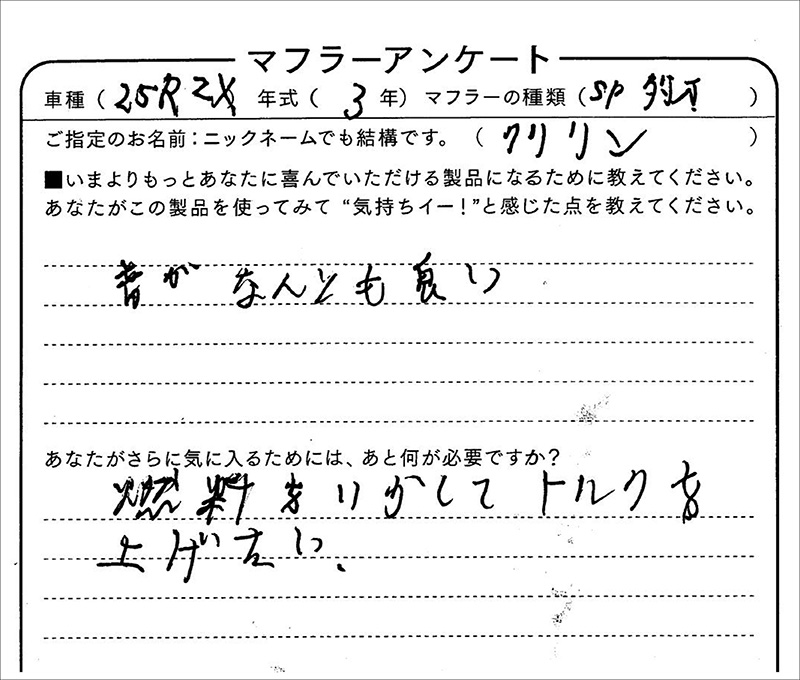 マフラーアンケート
車種（ 25R2X 年式（ 3 年）マフラーの種類（ SP ）
ご指定のお名前：ニックネームでも結構です。（ クリリン ）
■いまよりもっとあなたに喜んでいただける製品になるために教えてください。
あなたがこの製品を使ってみて“気持ちイー！”と感じた点を教えてください。
音がなんとも良い
あなたがさらに気に入るためには、あと何が必要ですか？
燃料をいかしてトルクを
上げたい.